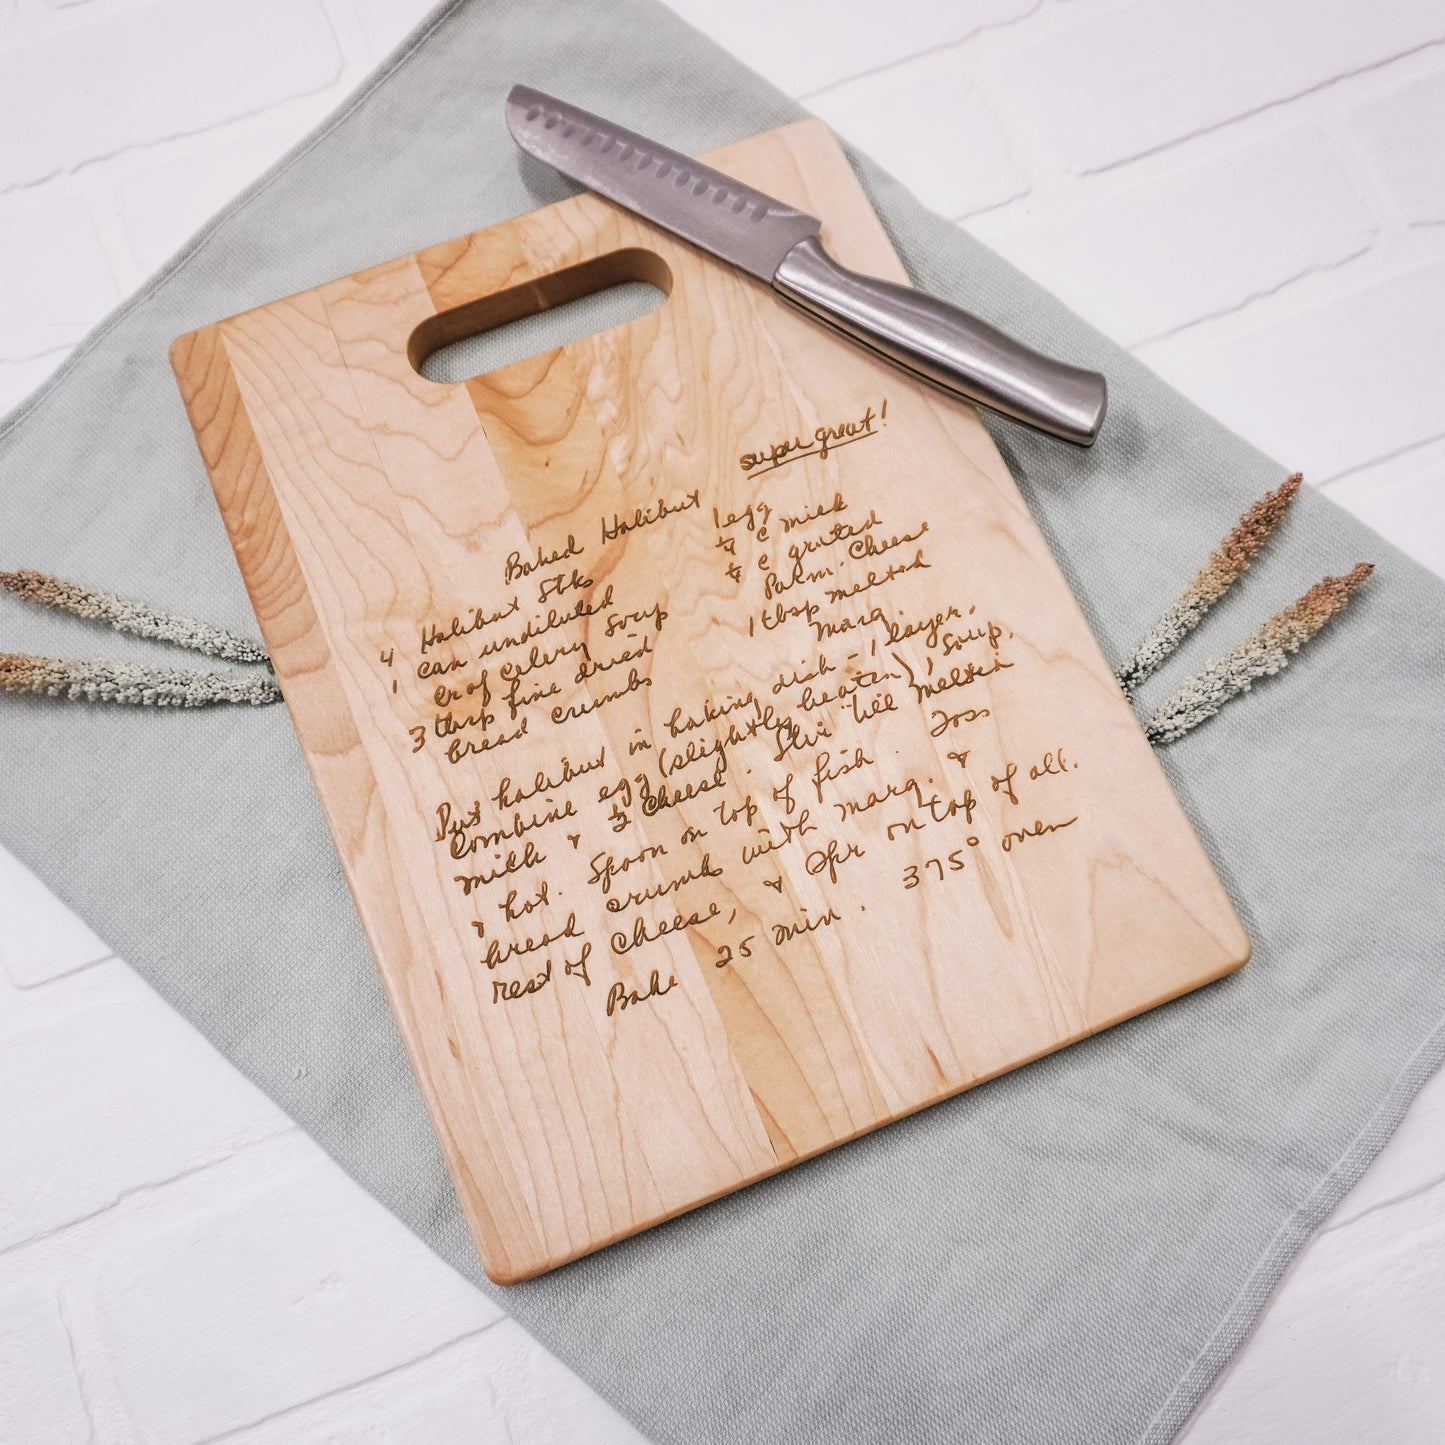 super great!
Baked Halibut
4 Halibut Stks
1 can undiluted
cr of celery soup
3 tbsp fine dried
bread crumbs
1 egg
1/4 c milk
1/4 c grated
Parm. Cheese
1 tbsp melted
marg.
Put halibut in baking dish - 1 layer.
Combine egg (slightly beaten), soup,
milk & 1/2 cheese. Stir till melted
& hot. Spoon on top of fish. Toss
bread crumbs with marg. &
rest of cheese, & Spr on top of all.
Bake 25 min. 375° oven